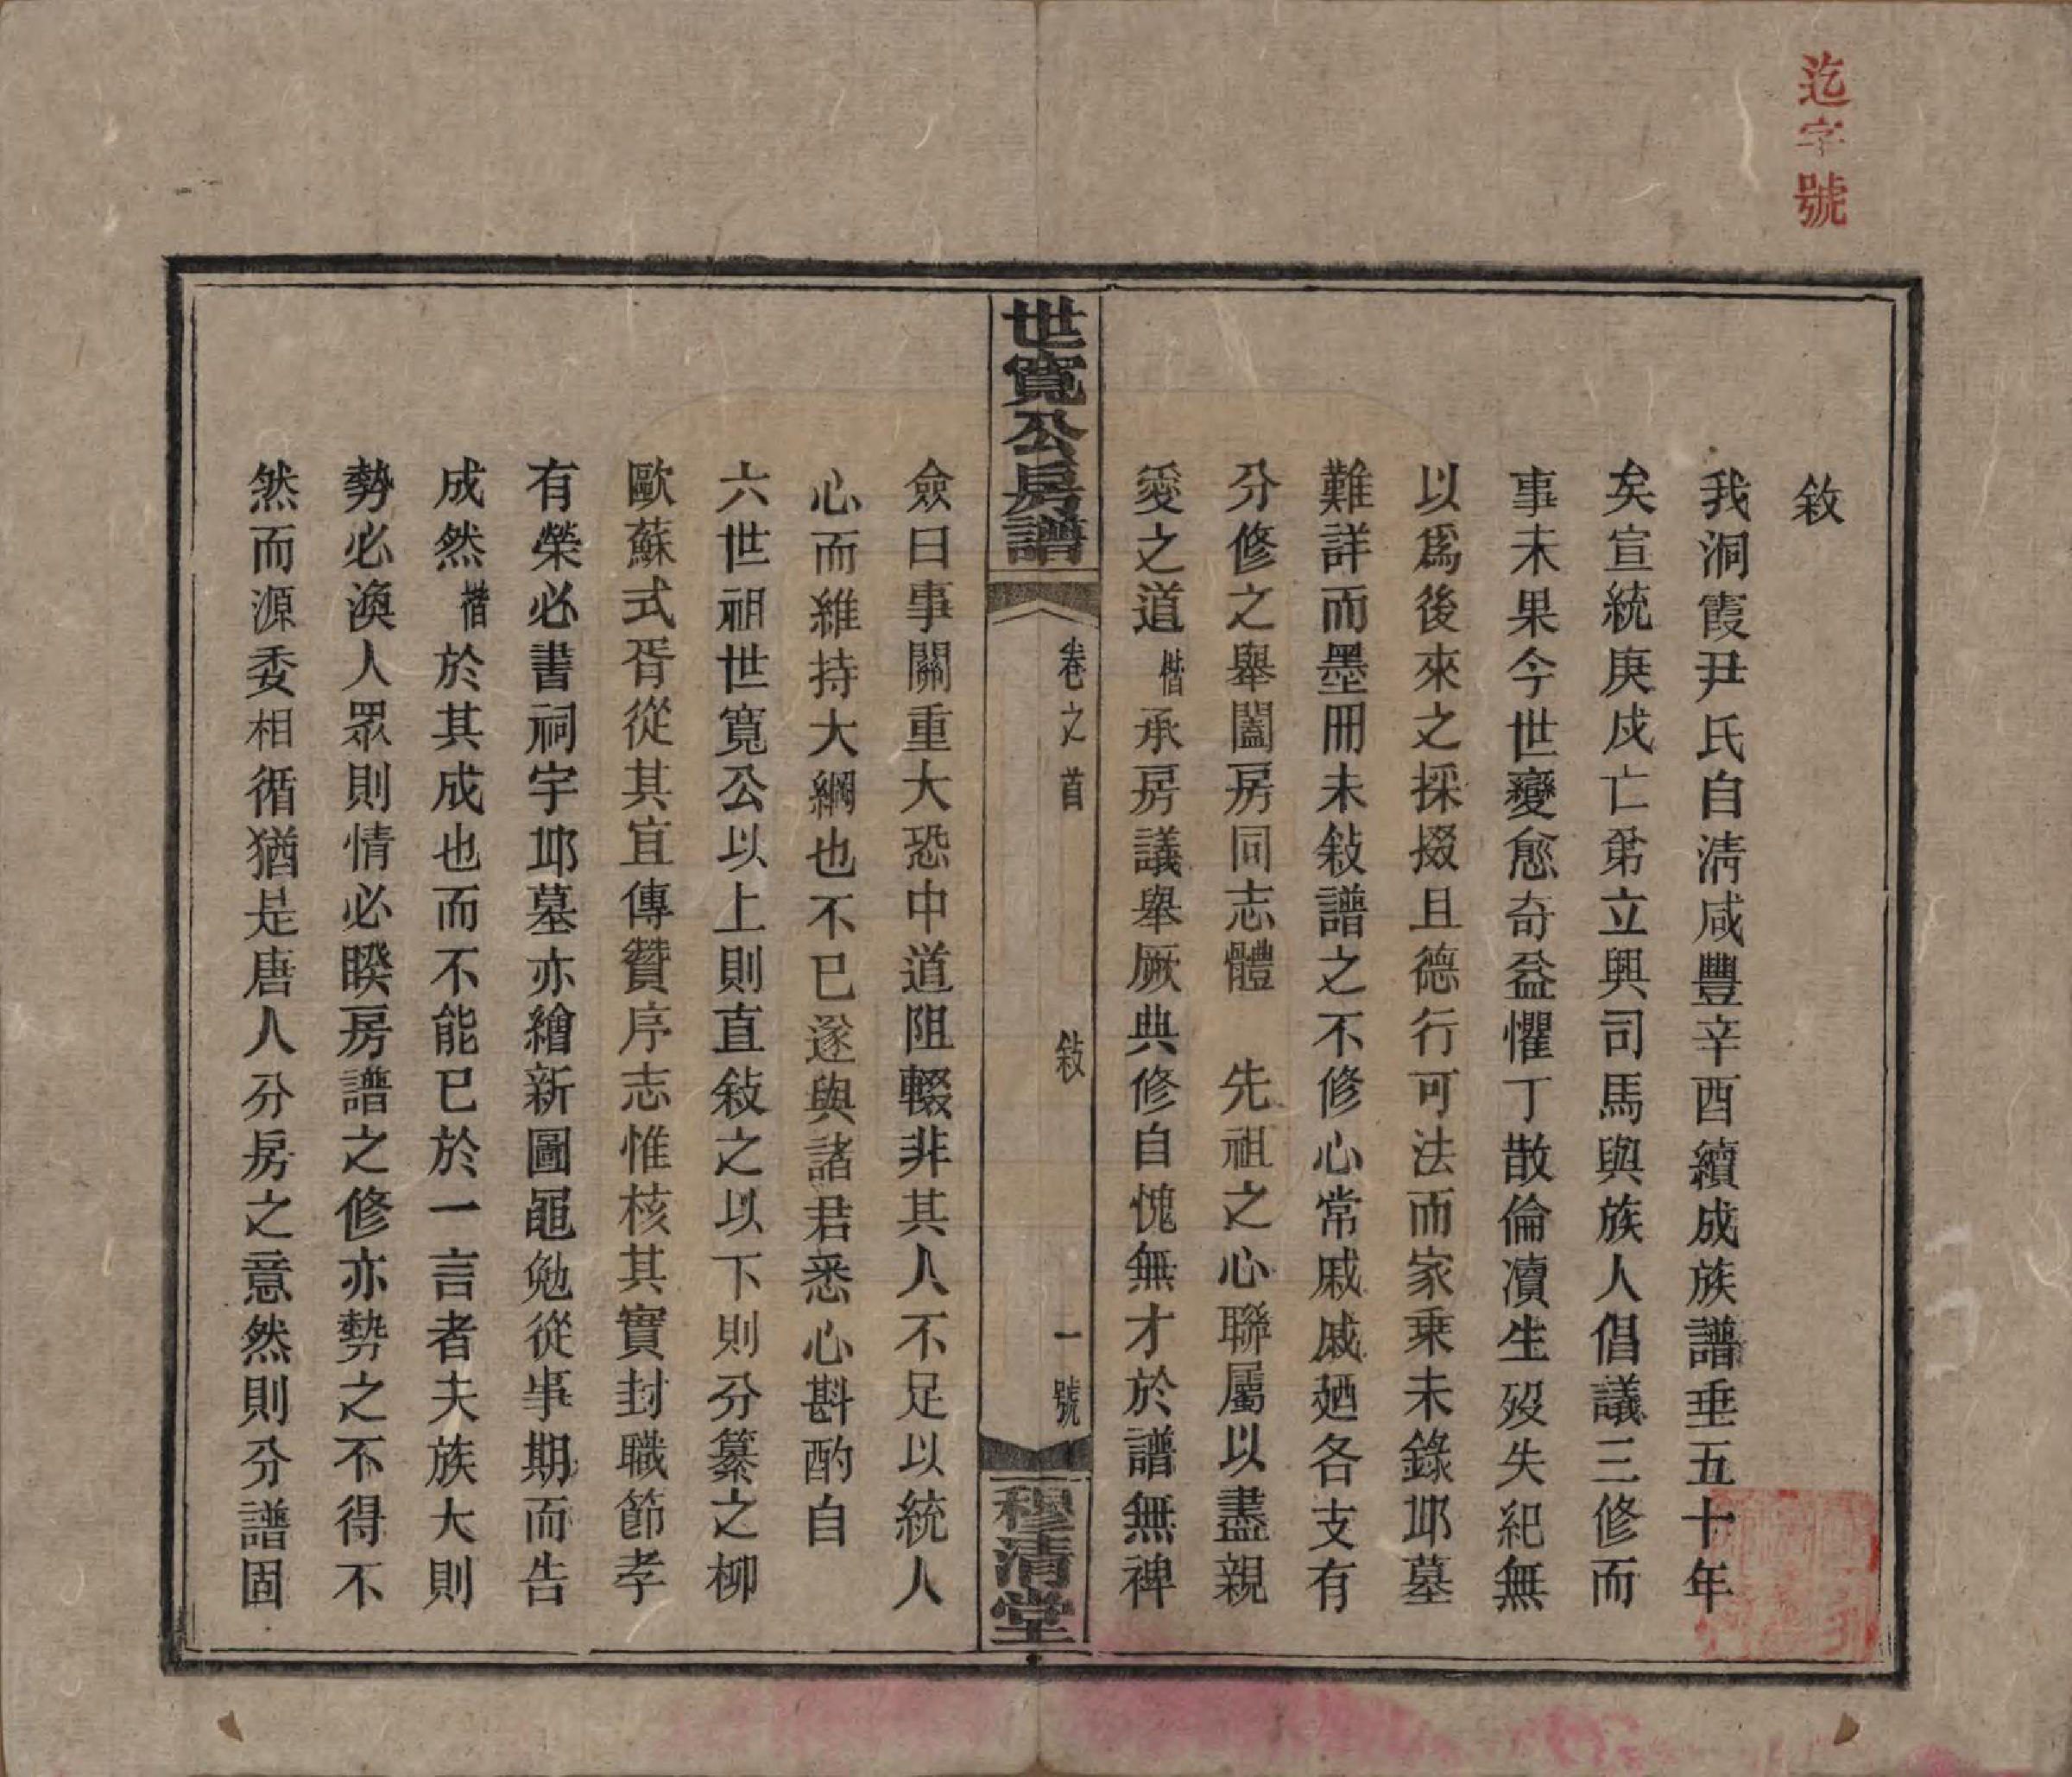 迄字號
敘
我洞霞尹氏自淸咸豐辛酉續成族譜垂五十年
矣宣統庚戍亡弟立興司馬與族人倡議三修而
事未果今世變愈奇益懼丁散倫凟生歿失紀無
以爲後來之採掇且德行可法而家乗未錄邱墓
難詳而墨冊未敍譜之不修心常戚戚廼各支有
分修之舉闔房同志體　先祖之心聯屬以盡親
愛之道㬱承房議舉厥典修自愧無才於譜無裨
僉曰事關重大恐中道阻輟非其人不足以統人
心而維持大綱也不已遂與諸君悉心斟酌自
六世祖世寬公以上則直敍之以下則分纂之柳
歐蘇式胥從其宜傳贊序志惟核其實封職節孝
有榮必書祠宇邱墓亦繪新圖黽勉從事期而告
成然㬱於其成也而不能已於一言者夫族大則
勢必渙人眾則情必睽房譜之修亦勢之不得不
然而源委相循猶是唐人分房之意然則分譜固
世寬公房譜
卷之首
敍
一號
穆清堂